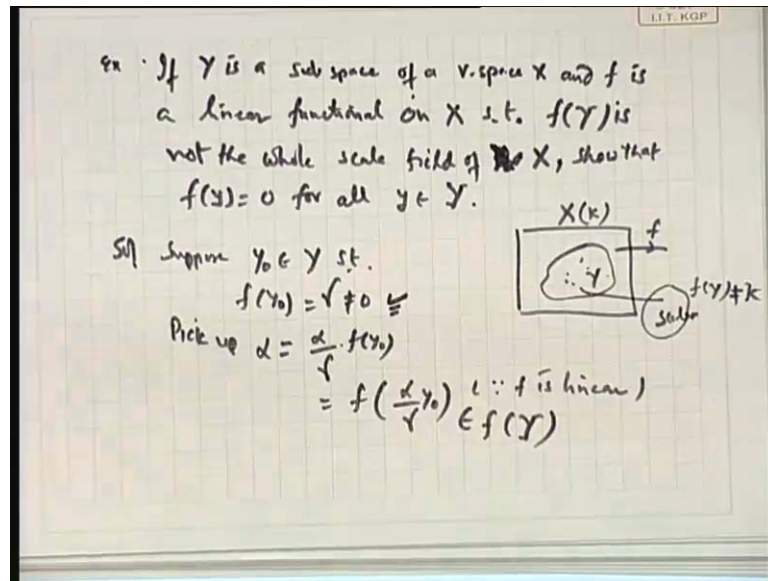 I.I.T. KGP
Ex. If Y is a subspace of a v.space X and f is
a linear functional on X s.t. f(Y) is
not the whole scale field of X, show that
f(y) = 0 for all y ∈ Y.
X(K)
f
Y
f(Y) ≠ K
Sol Suppose y₀ ∈ Y s.t.
f(y₀) = γ ≠ 0
Pick up α = α/γ · f(y₀)
= f(α/γ y₀) (∵ f is linear)
∈ f(Y)